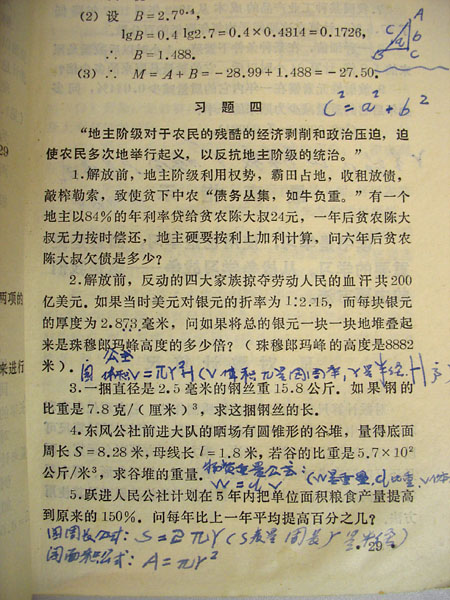 (2) 设 B=2.7⁰·⁴,
lgB=0.4 lg2.7=0.4×0.4314=0.1726,
∴ B=1.488.
(3) ∴ M=A+B=-28.99+1.488=-27.50.
A
C
b
B
C
a
习 题 四
C²=a²+b²
“地主阶级对于农民的残酷的经济剥削和政治压迫，迫
使农民多次地举行起义，以反抗地主阶级的统治。”
1.解放前，地主阶级利用权势，霸田占地，收租放债，
敲榨勒索，致使贫下中农“债务丛集，如牛负重。”有一个
地主以84%的年利率贷给贫农陈大叔24元，一年后贫农陈大
叔无力按时偿还，地主硬要按利上加利计算，问六年后贫农
陈大叔欠债是多少？
2.解放前，反动的四大家族掠夺劳动人民的血汗共200
亿美元。如果当时美元对银元的折率为1:2.15，而每块银元
的厚度为2.873毫米，问如果将总的银元一块一块地堆叠起
来是珠穆郎玛峰高度的多少倍？（珠穆郎玛峰的高度是8882
米）.
公式
V=πr²H (V体积 π是圆周率, r是半径.H
3.一捆直径是2.5毫米的钢丝重15.8公斤. 如果钢的
比重是7.8克/（厘米）³，求这捆钢丝的长.
4.东风公社前进大队的晒场有圆锥形的谷堆，量得底面
周长S=8.28米，母线长l=1.8米，若谷的比重是5.7×10²
公斤/米³，求谷堆的重量.
W=d.V
5.跃进人民公社计划在5年内把单位面积粮食产量提高
到原来的150%. 问每年比上一年平均提高百分之几？
圆周长公式: S=2πr (S表是圆表r是半径)
·29·
圆面积公式: A=πr²
29
两项的
来进行